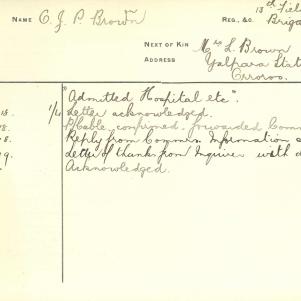 NAME C. J. P. Brown
REG., &c. 13th Fiel
Briga
NEXT OF KIN Mrs L. Brown
ADDRESS Yalpara Stat
Orroroo.
"Admitted Hospital etc".
18. 1/4 Letter acknowledged.
8. P/Cable, confirmed. forwarded Comm
8. Reply from Commn. Information
9. Letter of thanks from Inquirer with
Acknowledged.